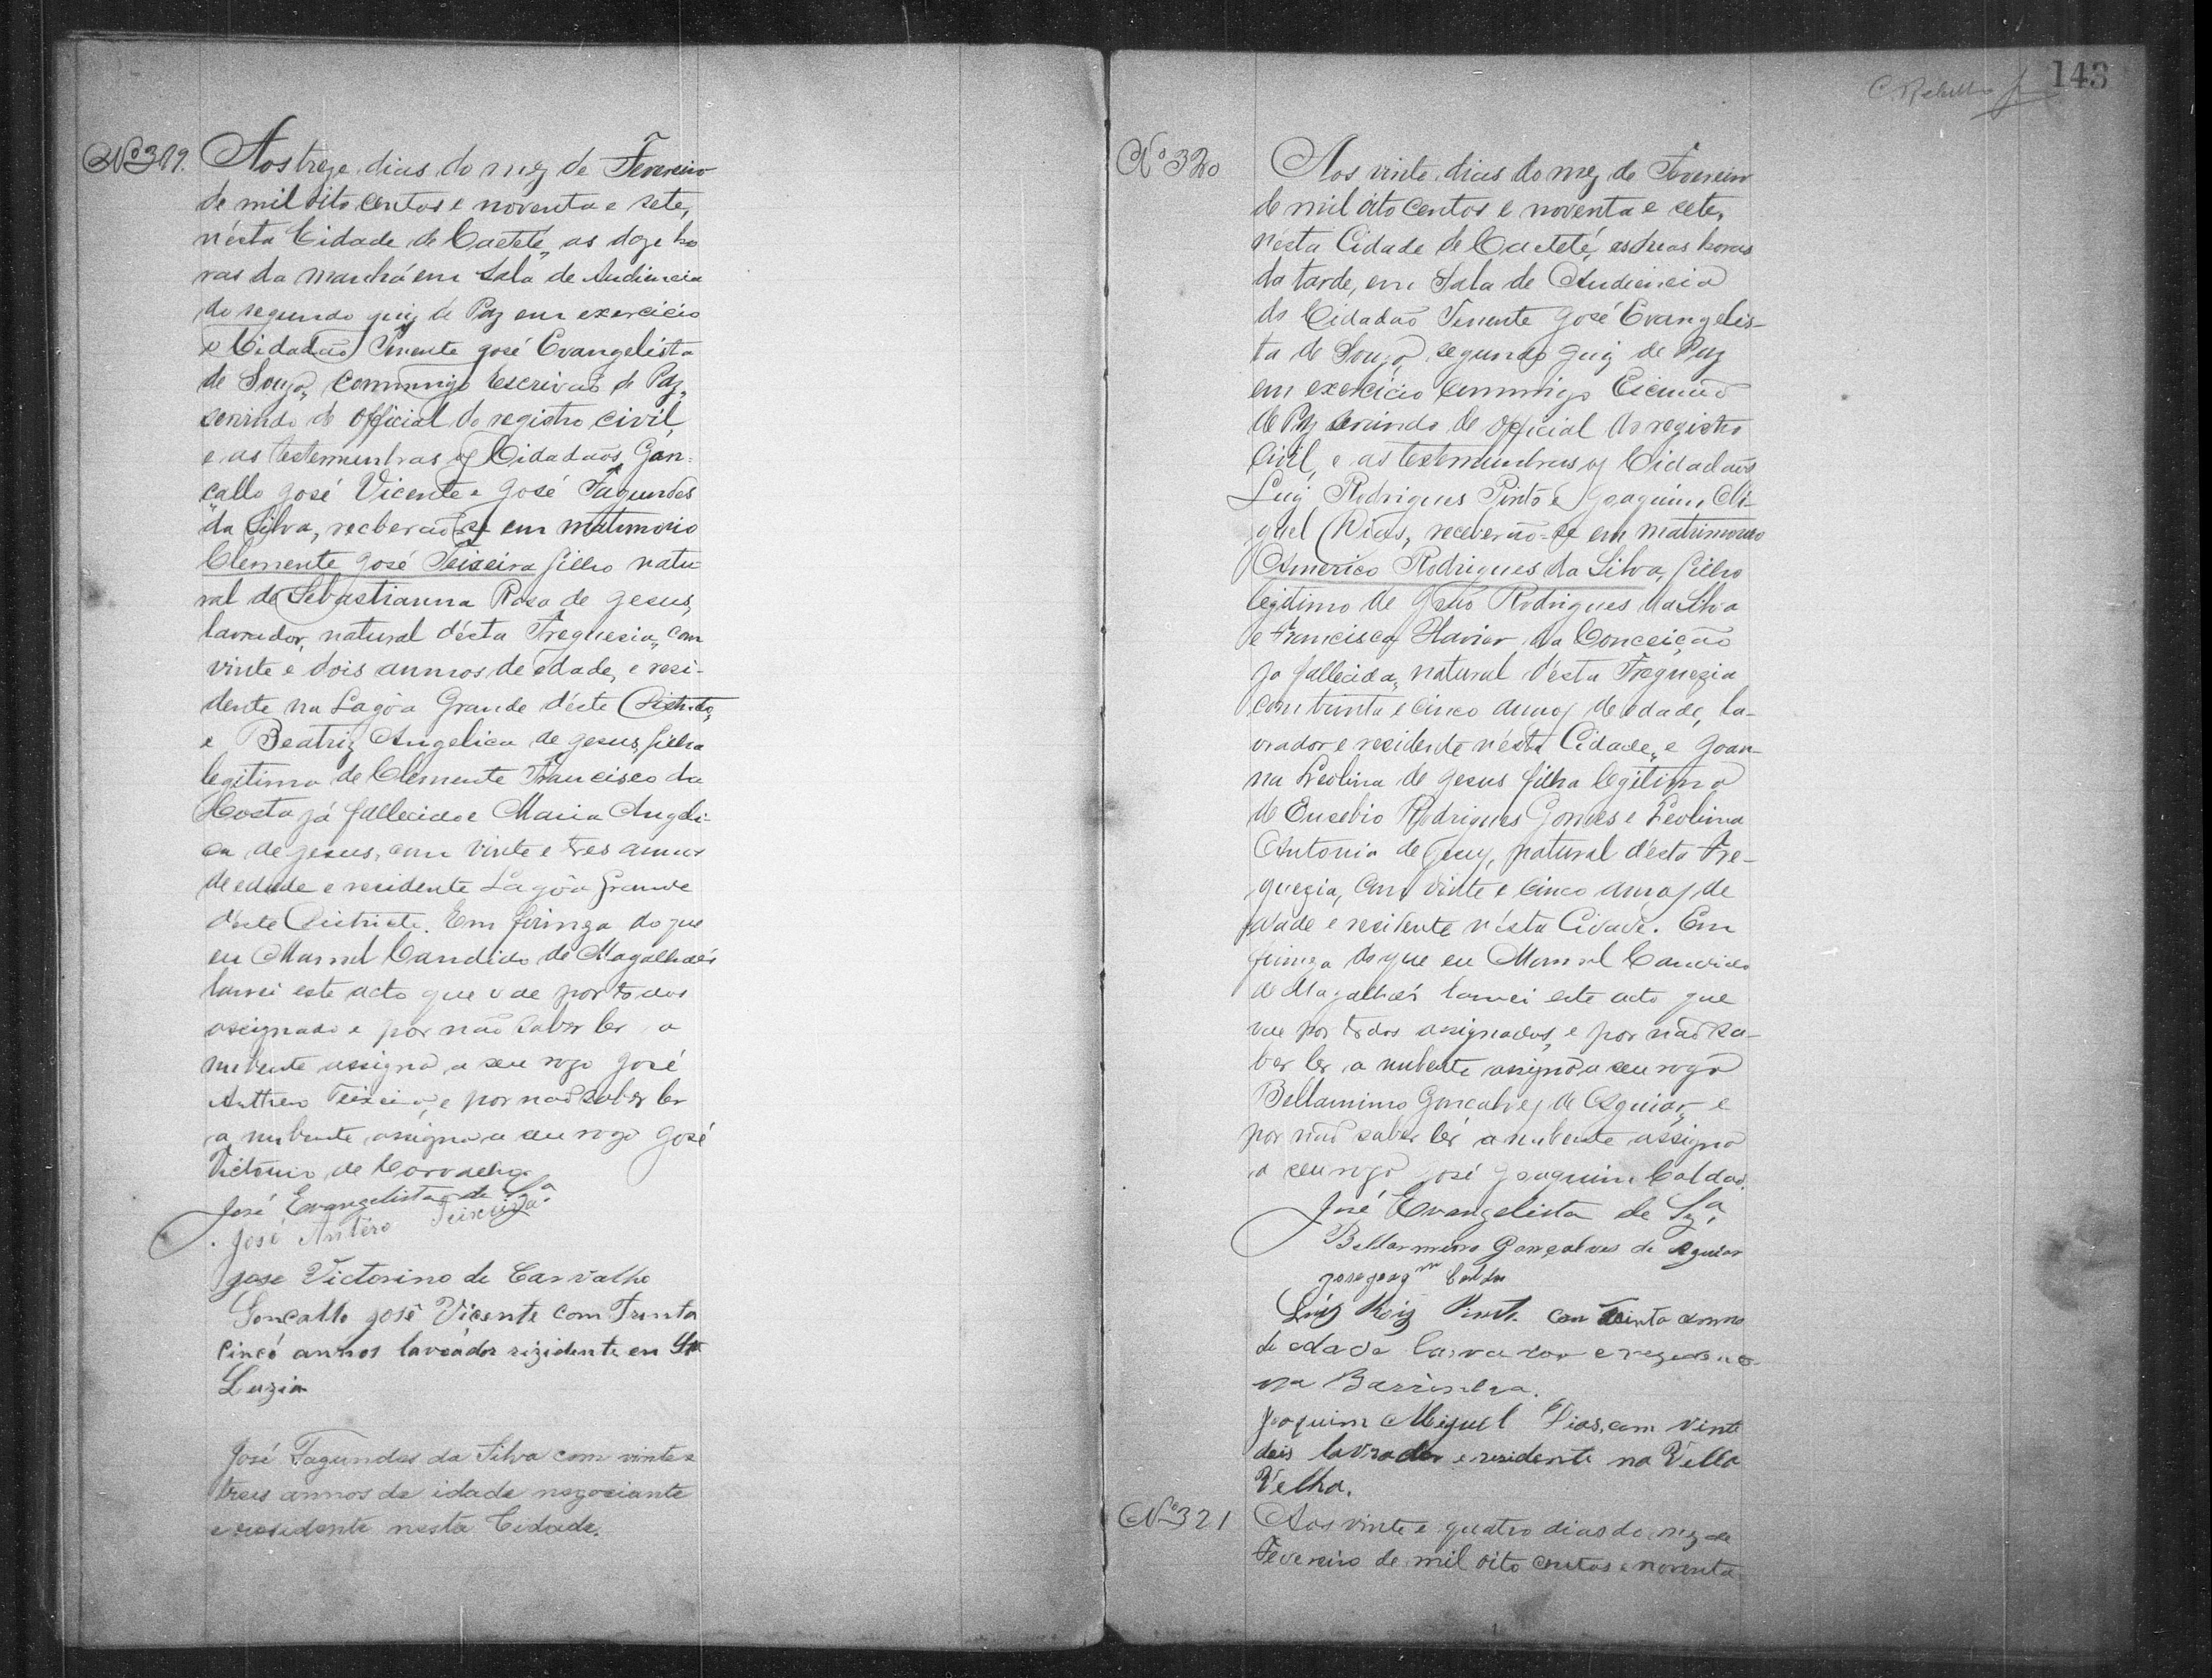 Nº 319.
Aos treze dias do mez de Fevereiro
de mil oito centos e noventa e sete,
nésta Cidade de Caeteté, as doze ho
ras da manhá em Sala de Audiencia
do segundo juiz de Paz em exercicio
o Cidadão Tenente José Evangelista
de Souza, commigo Escrivão de Paz,
servindo de official do registro civil,
e as testemunhas os Cidadaõs Gon-
çallo José Vicente e José Fagundes
da Silva, receberão-se em matrimonio
Clemente José Teixeira filho natu-
ral de Sebastianna Rosa de Jesus,
lavrador, natural désta Freguesia, com
vinte e dois annos de edade, e resi-
dente na Lagôa Grande déste Districto,
e Beatriz Angelica de Jesus, filha
legitima de Clemente Francisco da
Costa já fallecido e Maria Angeli-
ca de Jesus, com vinte e tres annos
de edade e residente Lagôa Grande
déste Districto. Em firmeza do que
eu Manoel Candido de Magalhães
lavrei este acto que vae por todos
assignado e por não saber ler o
nubente assigna a seu rogo José
Anthero Teixeira, e por não saber ler
a nubente assigna a seu rogo José
Victorino de Carvalho.
José Evangelista de Sz.ª
José Antero Teixeira
Jose Victorino de Carvalho
Goncallo José Vicente com Trinta
cinco annos lavrador rizidente en Stª
Luzia
José Fagundes da Silva com vinte e
treis annos de idade negociante
e residente nesta Cidade.
143
Nº 320
Aos vinte dias do mez de Fevereiro
de mil oito centos e noventa e sete,
nésta Cidade de Caeteté, as duas horas
da tarde, em Sala de Audiencia
do Cidadão Tenente José Evangelis-
ta de Souza, segundo juiz de Paz
em exercicio commigo Escrivão
de Paz servindo de official do registro
Civil, e as testemunhas os Cidadaõs
Luiz Rodrigues Pinto e Joaquim Mi-
guel Dias, receberão-se em matrimonio
Americo Rodrigues da Silva, filho
legitimo de João Rodrigues da Silva
e Francisca Xavier da Conceição
ja fallecida, natural désta Freguezia
com trinta e cinco annos de edade, la-
vrador e residente nésta Cidade, e Joan-
na Leolina de Jesus filha legitima
de Eusebio Rodrigues Gomes e Leolina
Antonia de Jesus, natural désta Fre-
guezia, com vinte e cinco annos de
edade e residente nésta Cidade. Em
firmeza do que eu Manoel Candido
de Magalhães lavrei este acto que
vae por todos assignados, e por não sa-
ber ler o nubente assigna a seu rogo
Bellarmino Gonçalves de Aguiar, e
por não saber lêr a nubente assigna
a seu rogo José Joaquim Caldas.
José Evangelista de Sz.ª
Bellarmino Gonçalves de Aguiar
José Joaqm Caldas
Luiz Roiz Pinto. com trinta annos
de edade lavrador e rezidente
na Barrinha.
Joaquim Miguel Dias, com vinte
dois lavrador e residente na Villa
Velha.
Nº 321
Aos vinte e quatro dias do mez de
Fevereiro de mil oito centos e noventa